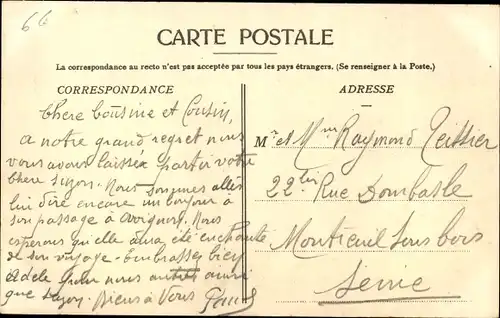 66
CARTE POSTALE
La correspondance au recto n'est pas acceptée par tous les pays étrangers. (Se renseigner à la Poste.)
CORRESPONDANCE
Chere Cousine et Cousin,
a notre grand regret nous
vous avons laissez partir votre
chere Suzon. Nous sommes allés
lui dire encore un bonjour à
son passage à Avignon. Nous
esperons qu'elle aura été enchantée
de son voyage. Embrassez bien
Adele pour nous ainsi
que Suzon. Biens à Vous
ADRESSE
Mr et Mme Raymond Teissier
22 ter Rue Dombasle
Montreuil Sous bois
Seine